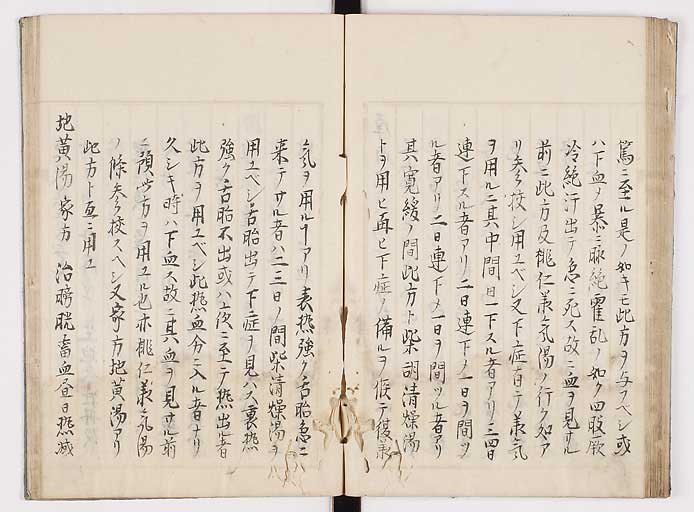 篤ニ至ル是ノ如キモ此方ヲ与フベシ或
ハ下血ノ暴ニ脉絶霍乱ノ如ク四肢厥
冷絶汗出テ急ニ死ス故ニ血ヲ見サル
前ニ此方及桃仁義氣湯ノ行ク処ア
リ参々挍シ用ユベシ又下症有テ義氣
ヲ用ルニ其中間日一下スル者アリ三四日
連下スル者アリ二日連下ノ一日ヲ間ツ
ル者アリ二日連下メ一日ヲ間ツル者アリ
其寛緩ノ間此方ト柴胡清燥湯
トヲ用ヒ再ヒ下症ノ備ルヲ俟テ復義
氣ヲ用ルヿアリ表熱強ク舌胎急ニ
来テサル者ハ二三日ノ間柴清燥湯ヲ
用ユベシ舌胎出テ下症ヲ見ハス裏熱
強ク舌胎不出或ハ上夜ニ至テ熱出者
此方ヲ用ユベシ此熱血分ニ入ル者ナリ
久シキ時ハ下血ス故ニ其血ヲ見サル前
ニ預此方ヲ用ユル也亦桃仁義氣湯
ノ條参挍スベシ又家方地黄湯アリ
此方ト互ニ用ユ
地黄湯 家方 治膀胱畜血昼日熱減